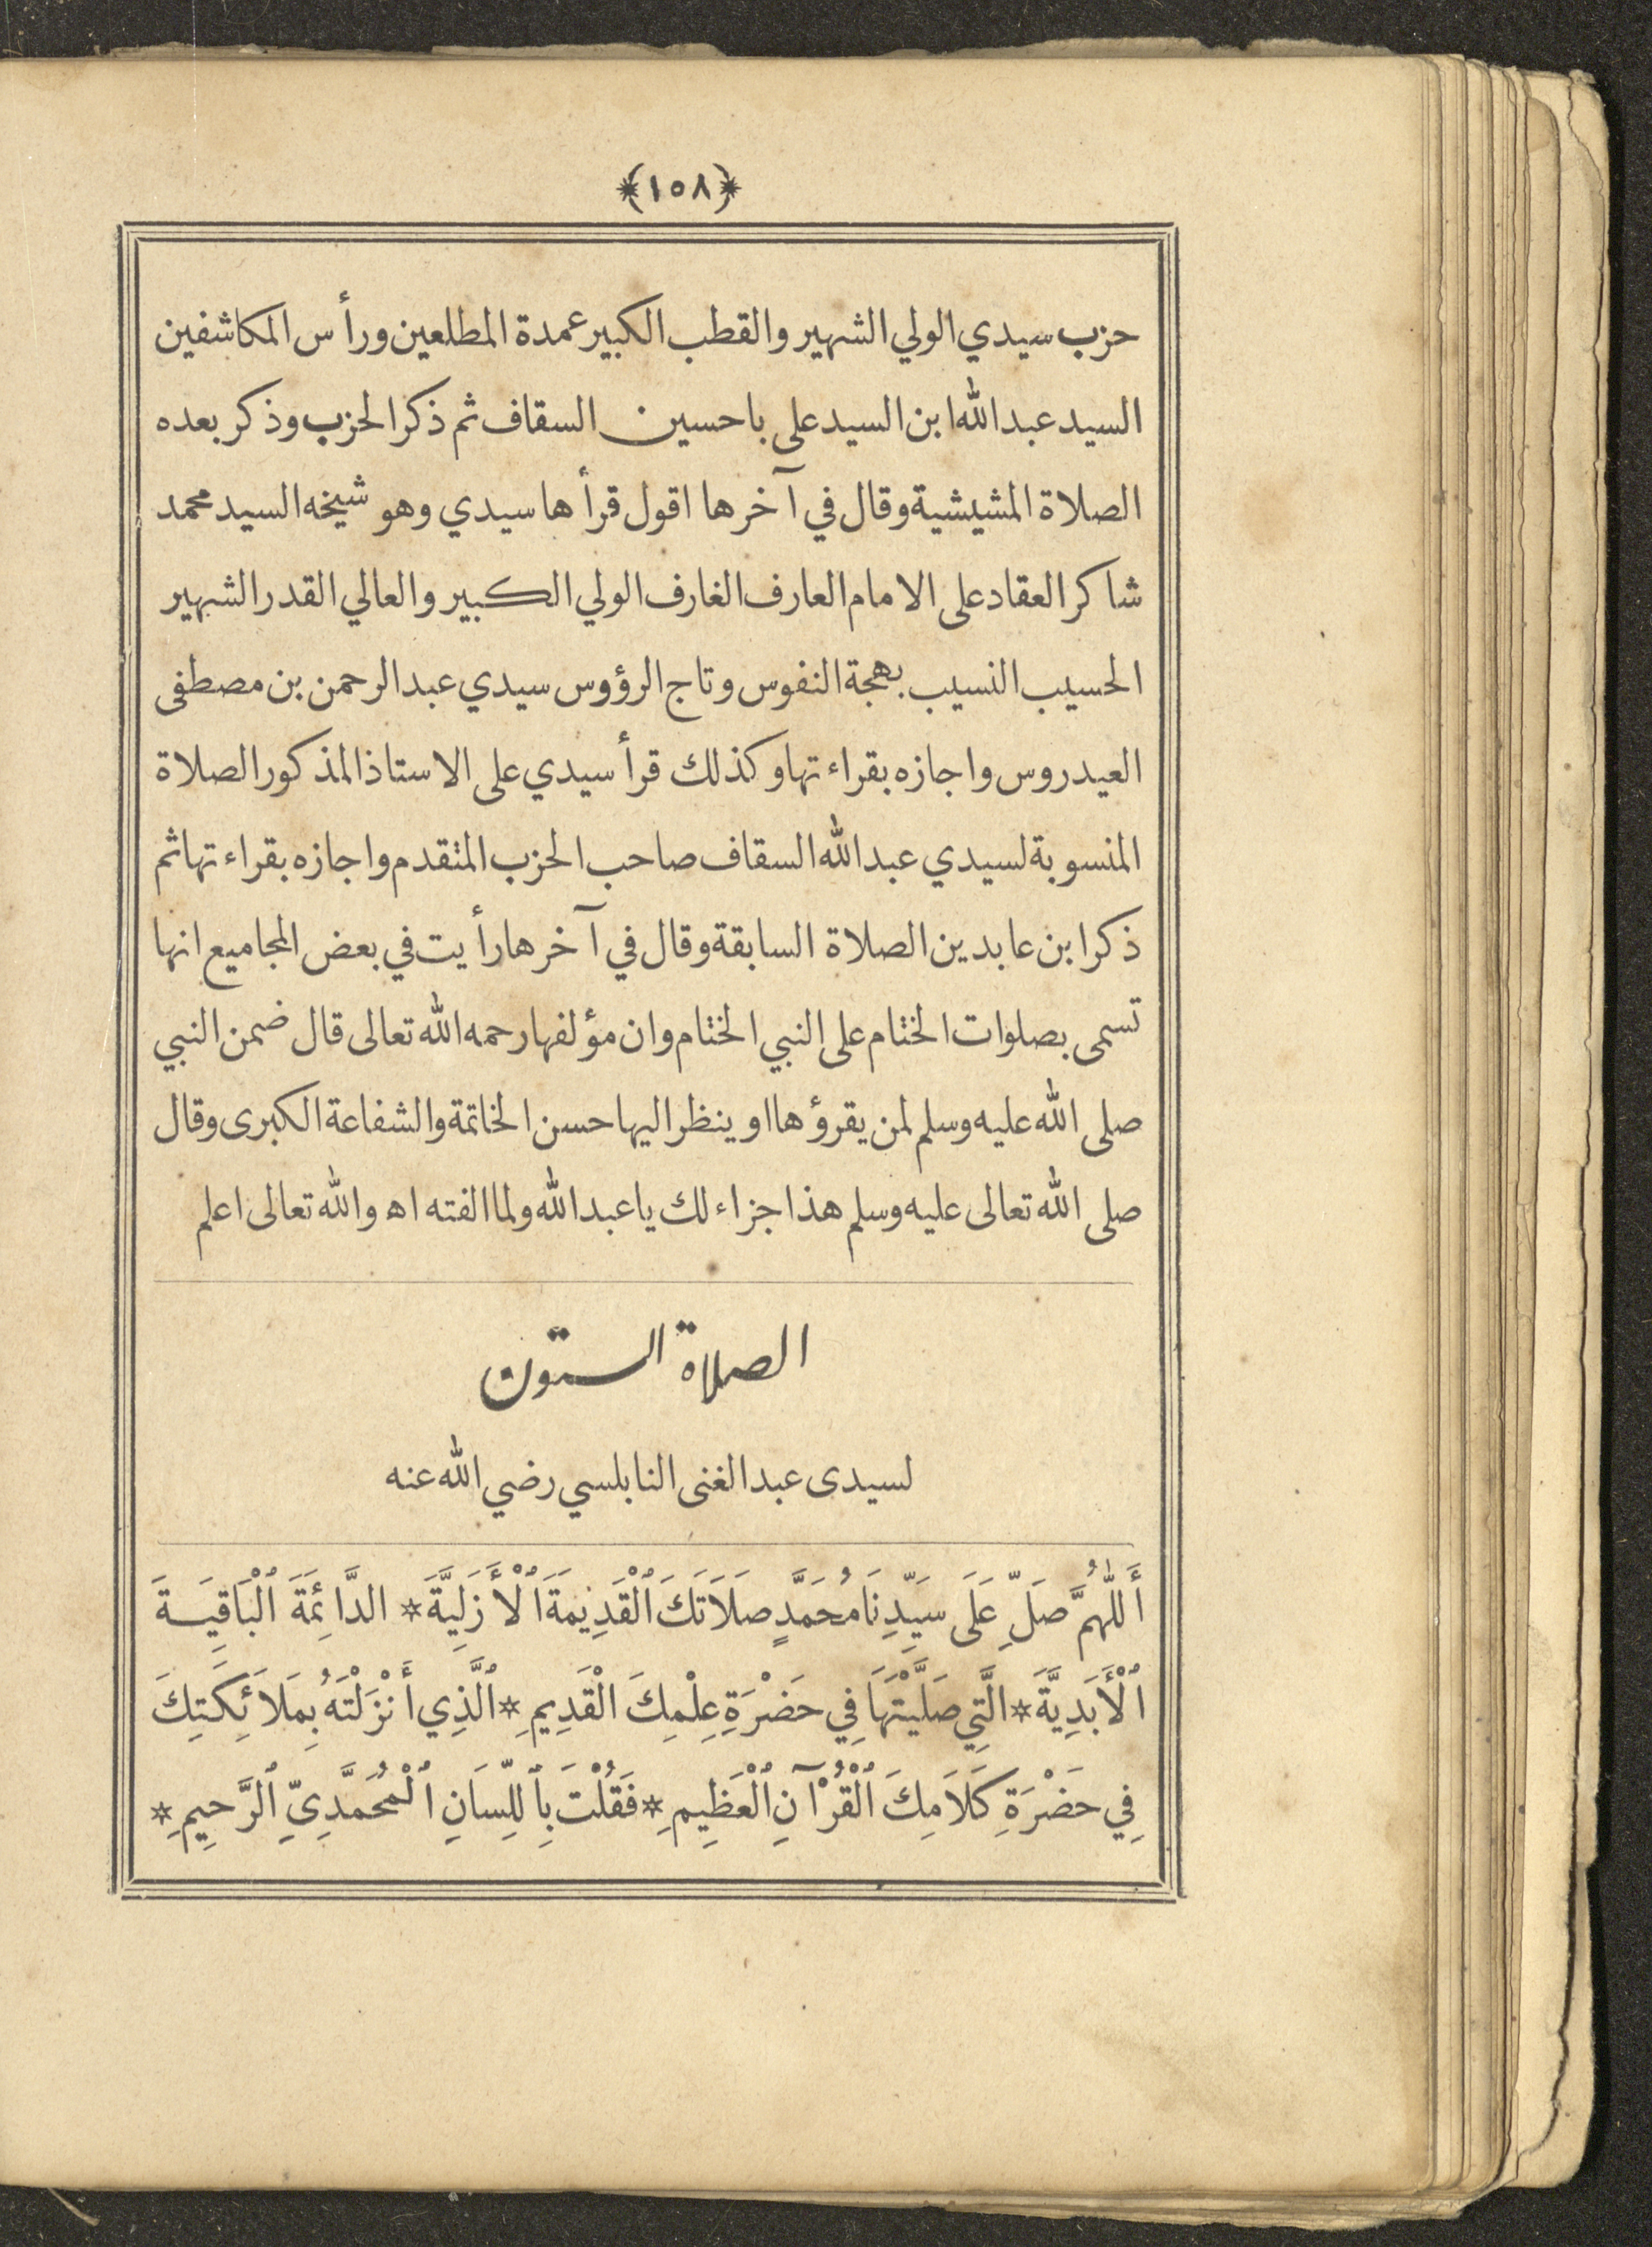 ﴿١٠٨﴾
حزب سيدي الولي الشهير والقطب الكبير عمدة المطلعين ورأس المكاشفين
السيد عبد الله ابن السيد على با حسين السقاف ثم ذكر الحزب وذكر بعده
الصلاة المشيشية وقال في آخرها اقول قرأها سيدي وهو شيخه السيد محمد
شاكر العقاد على الامام العارف الغارف الولي الكبير والعالي القدر الشهير
الحسيب النسيب بهجة النفوس وتاج الرؤوس سيدي عبد الرحمن بن مصطفى
العيدروس واجازه بقراءتها وكذلك قرأ سيدي على الاستاذ المذكور الصلاة
المنسوبة لسيدي عبد الله السقاف صاحب الحزب المتقدم واجازه بقراءتها ثم
ذكر ابن عابدين الصلاة السابقة وقال في آخرها رأيت في بعض المجاميع انها
تسمى بصلوات الختام على النبي الختام وان مؤلفها رحمه الله تعالى قال ضمن النبي
صلى الله عليه وسلم لمن يقرؤها او ينظر اليها حسن الخاتمة والشفاعة الكبرى وقال
صلى الله تعالى عليه وسلم هذا جزاء لك يا عبد الله ولما الفته اه والله تعالى اعلم
الصلاة الستون
لسيدى عبد الغنى النابلسي رضي الله عنه
أَللّٰهُمَّ صَلِّ عَلَى سَيِّدِنَا مُحَمَّدٍ صَلَاتَكَ ٱلْقَدِيمَةَ ٱلْأَزَلِيَّةَ * الدَّائِمَةَ ٱلْبَاقِيَةَ
ٱلْأَبَدِيَّةَ * الَّتِي صَلَّيْتَهَا فِي حَضْرَةِ عِلْمِكَ الْقَدِيمِ * ٱلَّذِي أَنْزَلْتَهُ بِمَلَائِكَتِكَ
فِي حَضْرَةِ كَلَامِكَ ٱلْقُرْآنِ ٱلْعَظِيمِ * فَقُلْتَ بِٱللِّسَانِ ٱلْمُحَمَّدِيِّ ٱلرَّحِيمِ *